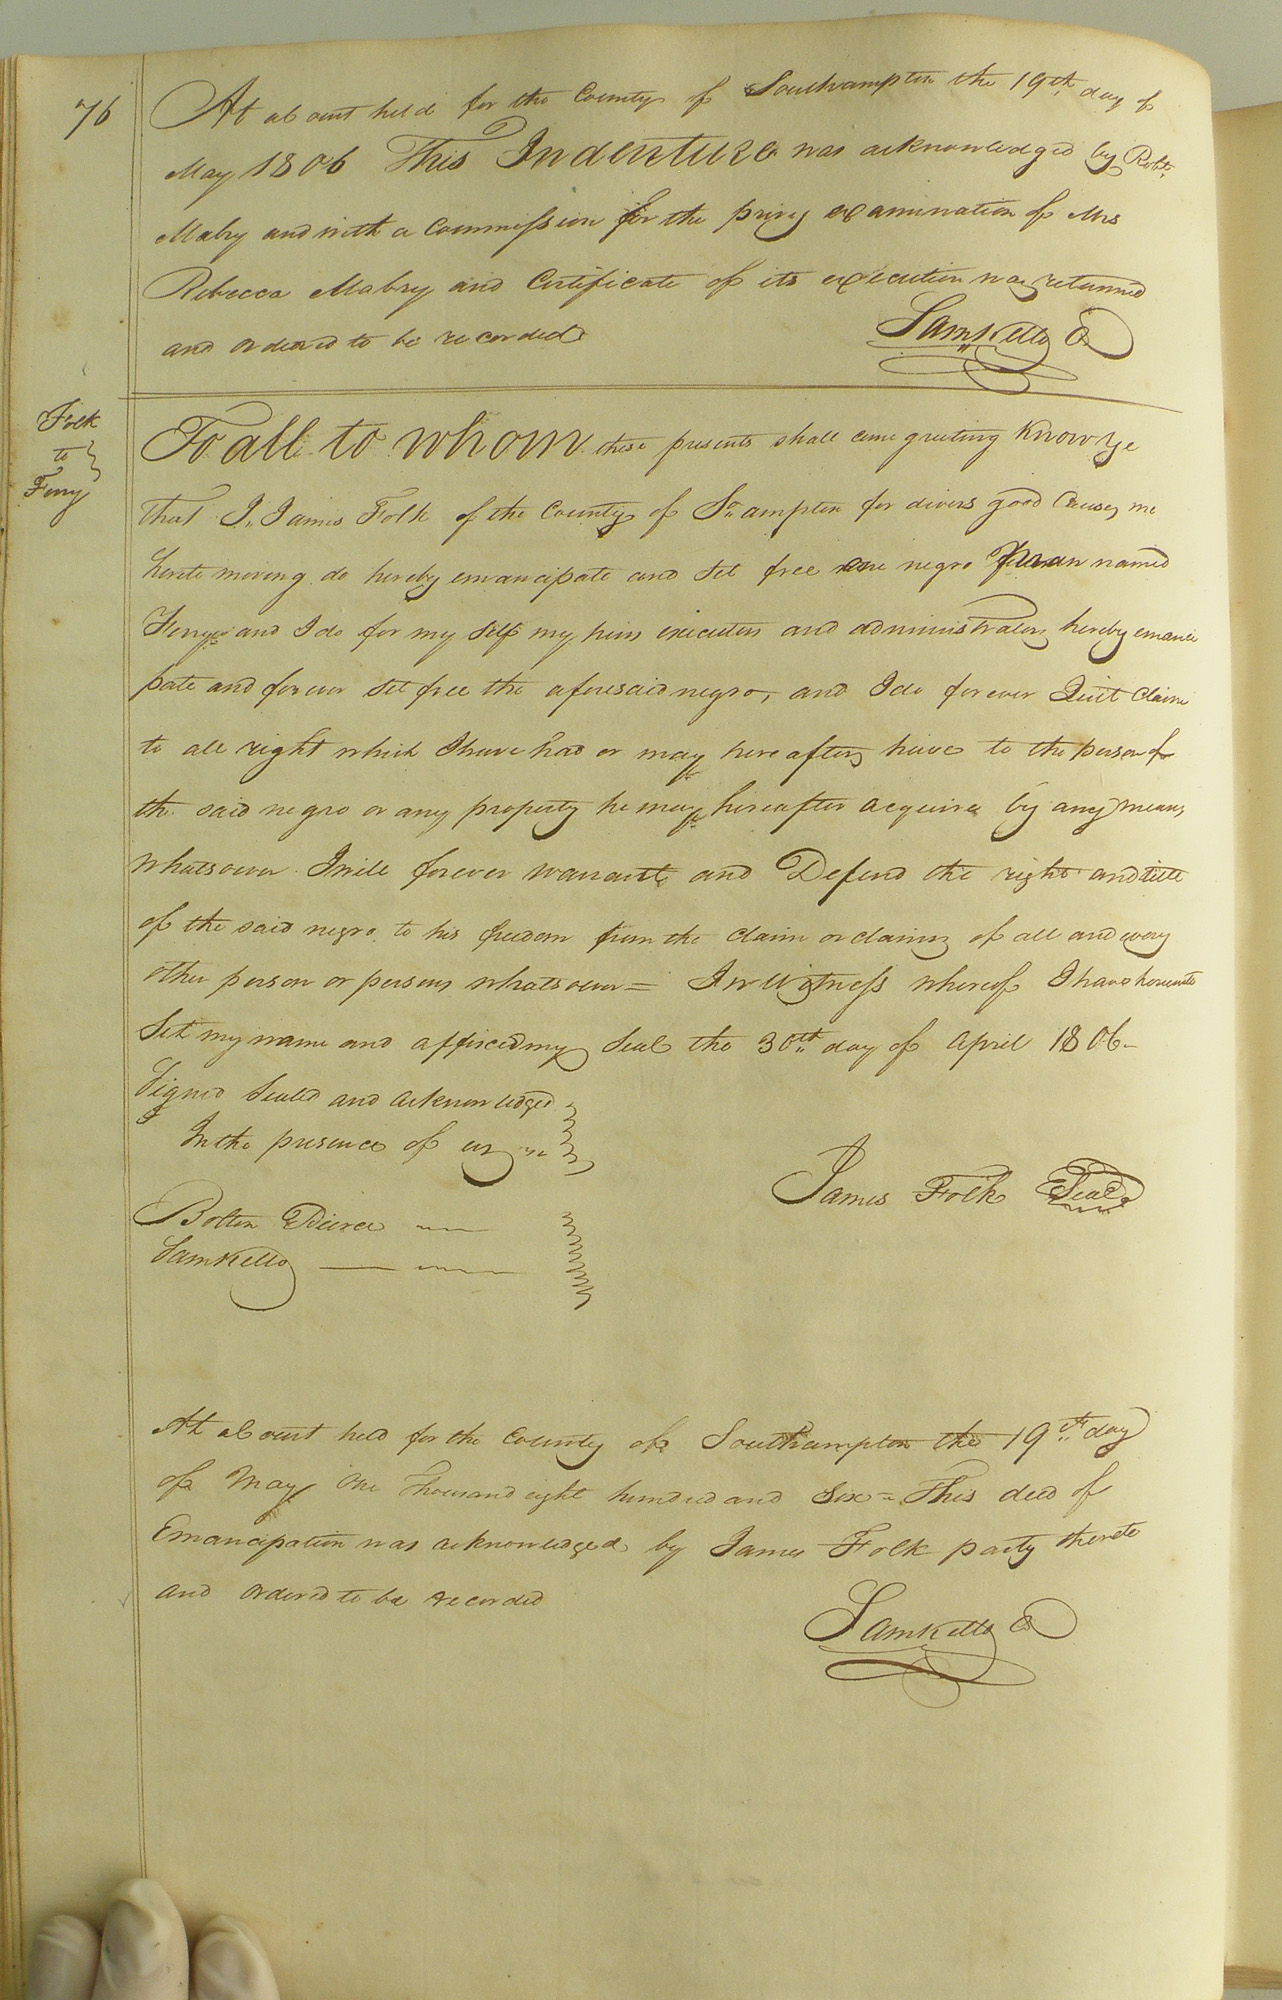 76
At a Court held for the County of Southampton the 19th day of
May 1806 This Indenture was acknowledged by Robt.
Mabry and with a Commission for the privy examination of Mrs
Rebecca Mabry and Certificate of its execution was returned
and ordered to be recorded
Sam Kello C
Folk
to
Ferry
To all to whom these presents shall come greeting Know ye
that I, James Folk of the County of So.ampton for divers good Causes me
hereto moving do hereby emancipate and set free one negro man named
Ferry and I do for my self my heirs executors and administrators hereby emanci
pate and forever set free the aforesaid negro, and I do forever Quit Claim
to all right which I have had or may hereafter have to the person of
the said negro or any property he may hereafter acquire by any means
whatsoever I will forever warrant and Defend the right and title
of the said negro to his freedom from the claim or claims of all and every
other person or persons whatsoever = In witness whereof I have hereunto
Set my name and affixed my Seal the 30th day of April 1806 -
Signed Sealed and acknowledged
In the presence of us
James Folk Seal
Bolten Pierce
Sam Kello
At a Court held for the County of Southampton the 19th day
of May One Thousand eight hundred and Six = This deed of
Emancipation was acknowledged by James Folk party thereto
and ordered to be recorded
Sam Kello C